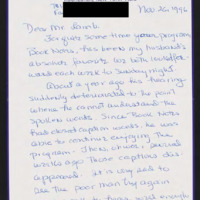 Nov 26, 1996
Dear Mr. Lamb,
For quite some time your program,
Book Notes, has been my husband's
absolute favorite. We both look forward
each week to Sunday night.
About a year ago his hearing
suddenly deteriorated to the point
where he cannot understand the
spoken words. Since Book Notes
had closed caption words, he was
able to continue enjoying the
program. Then, about
weeks ago those captions dis-
appeared. It is very sad to
see the poor man try again